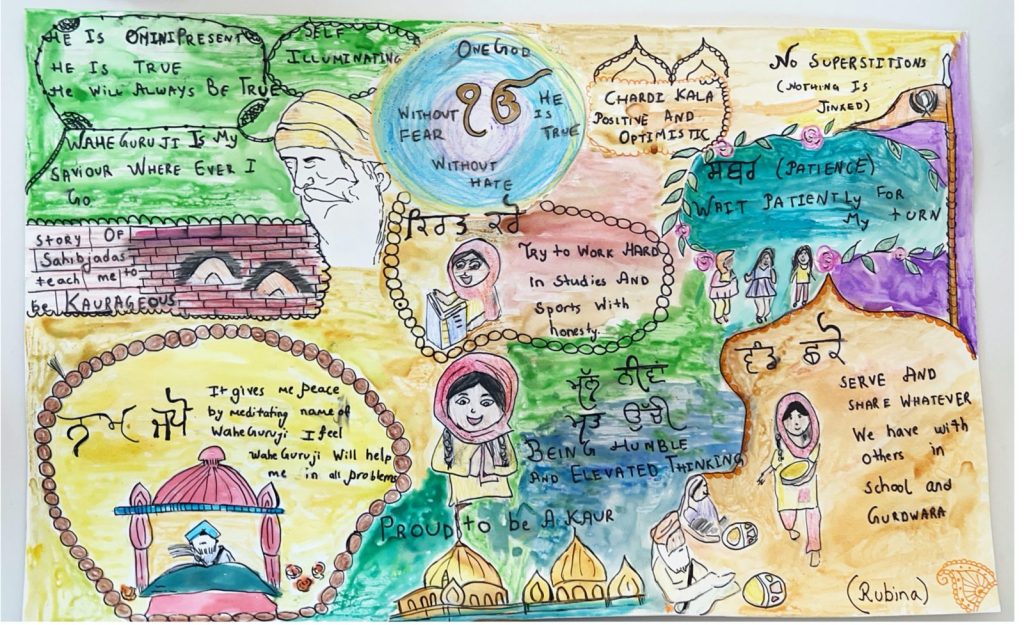 HE IS OMINIPRESENT
HE IS TRUE
He WILL ALWAYS BE TRUE
WAHE GURUJI IS MY
SAVIOUR WHERE EVER I
GO
SELF
ILLUMINATING
ONE GOD
ੴ
WITHOUT
FEAR
HE
IS
TRUE
WITHOUT
HATE
CHARDI KALA
POSITIVE AND
OPTIMISTIC
NO SUPERSTITIONS
(NOTHING IS
JINKED)
ਸਬਰ (PATIENCE)
WAIT PATIENTLY FOR
My TURN
STORY OF
Sahibjadas
teach me to
be KAURAGEOUS
ਕਿਰਤ ਕਰੋ
TRY TO WORK HARD
in Studies AND
Sports With
honesty.
ਨਾਮ ਜਪੋ
It gives me peace
by meditating name of
WaheGuruji I feel
WaheGuruji Will help
me in all problems
ਮਨ ਨੀਵਾਂ
ਮੱਤ ਉਚੀ
BEING HUMBLE
AND ELEVATED THINKING
PROUD to be A KAUR
ਵੰਡ ਛਕੋ
SERVE AND
SHARE WHATEVER
We have with
others in
School and
GURDWARA
(Rubina)